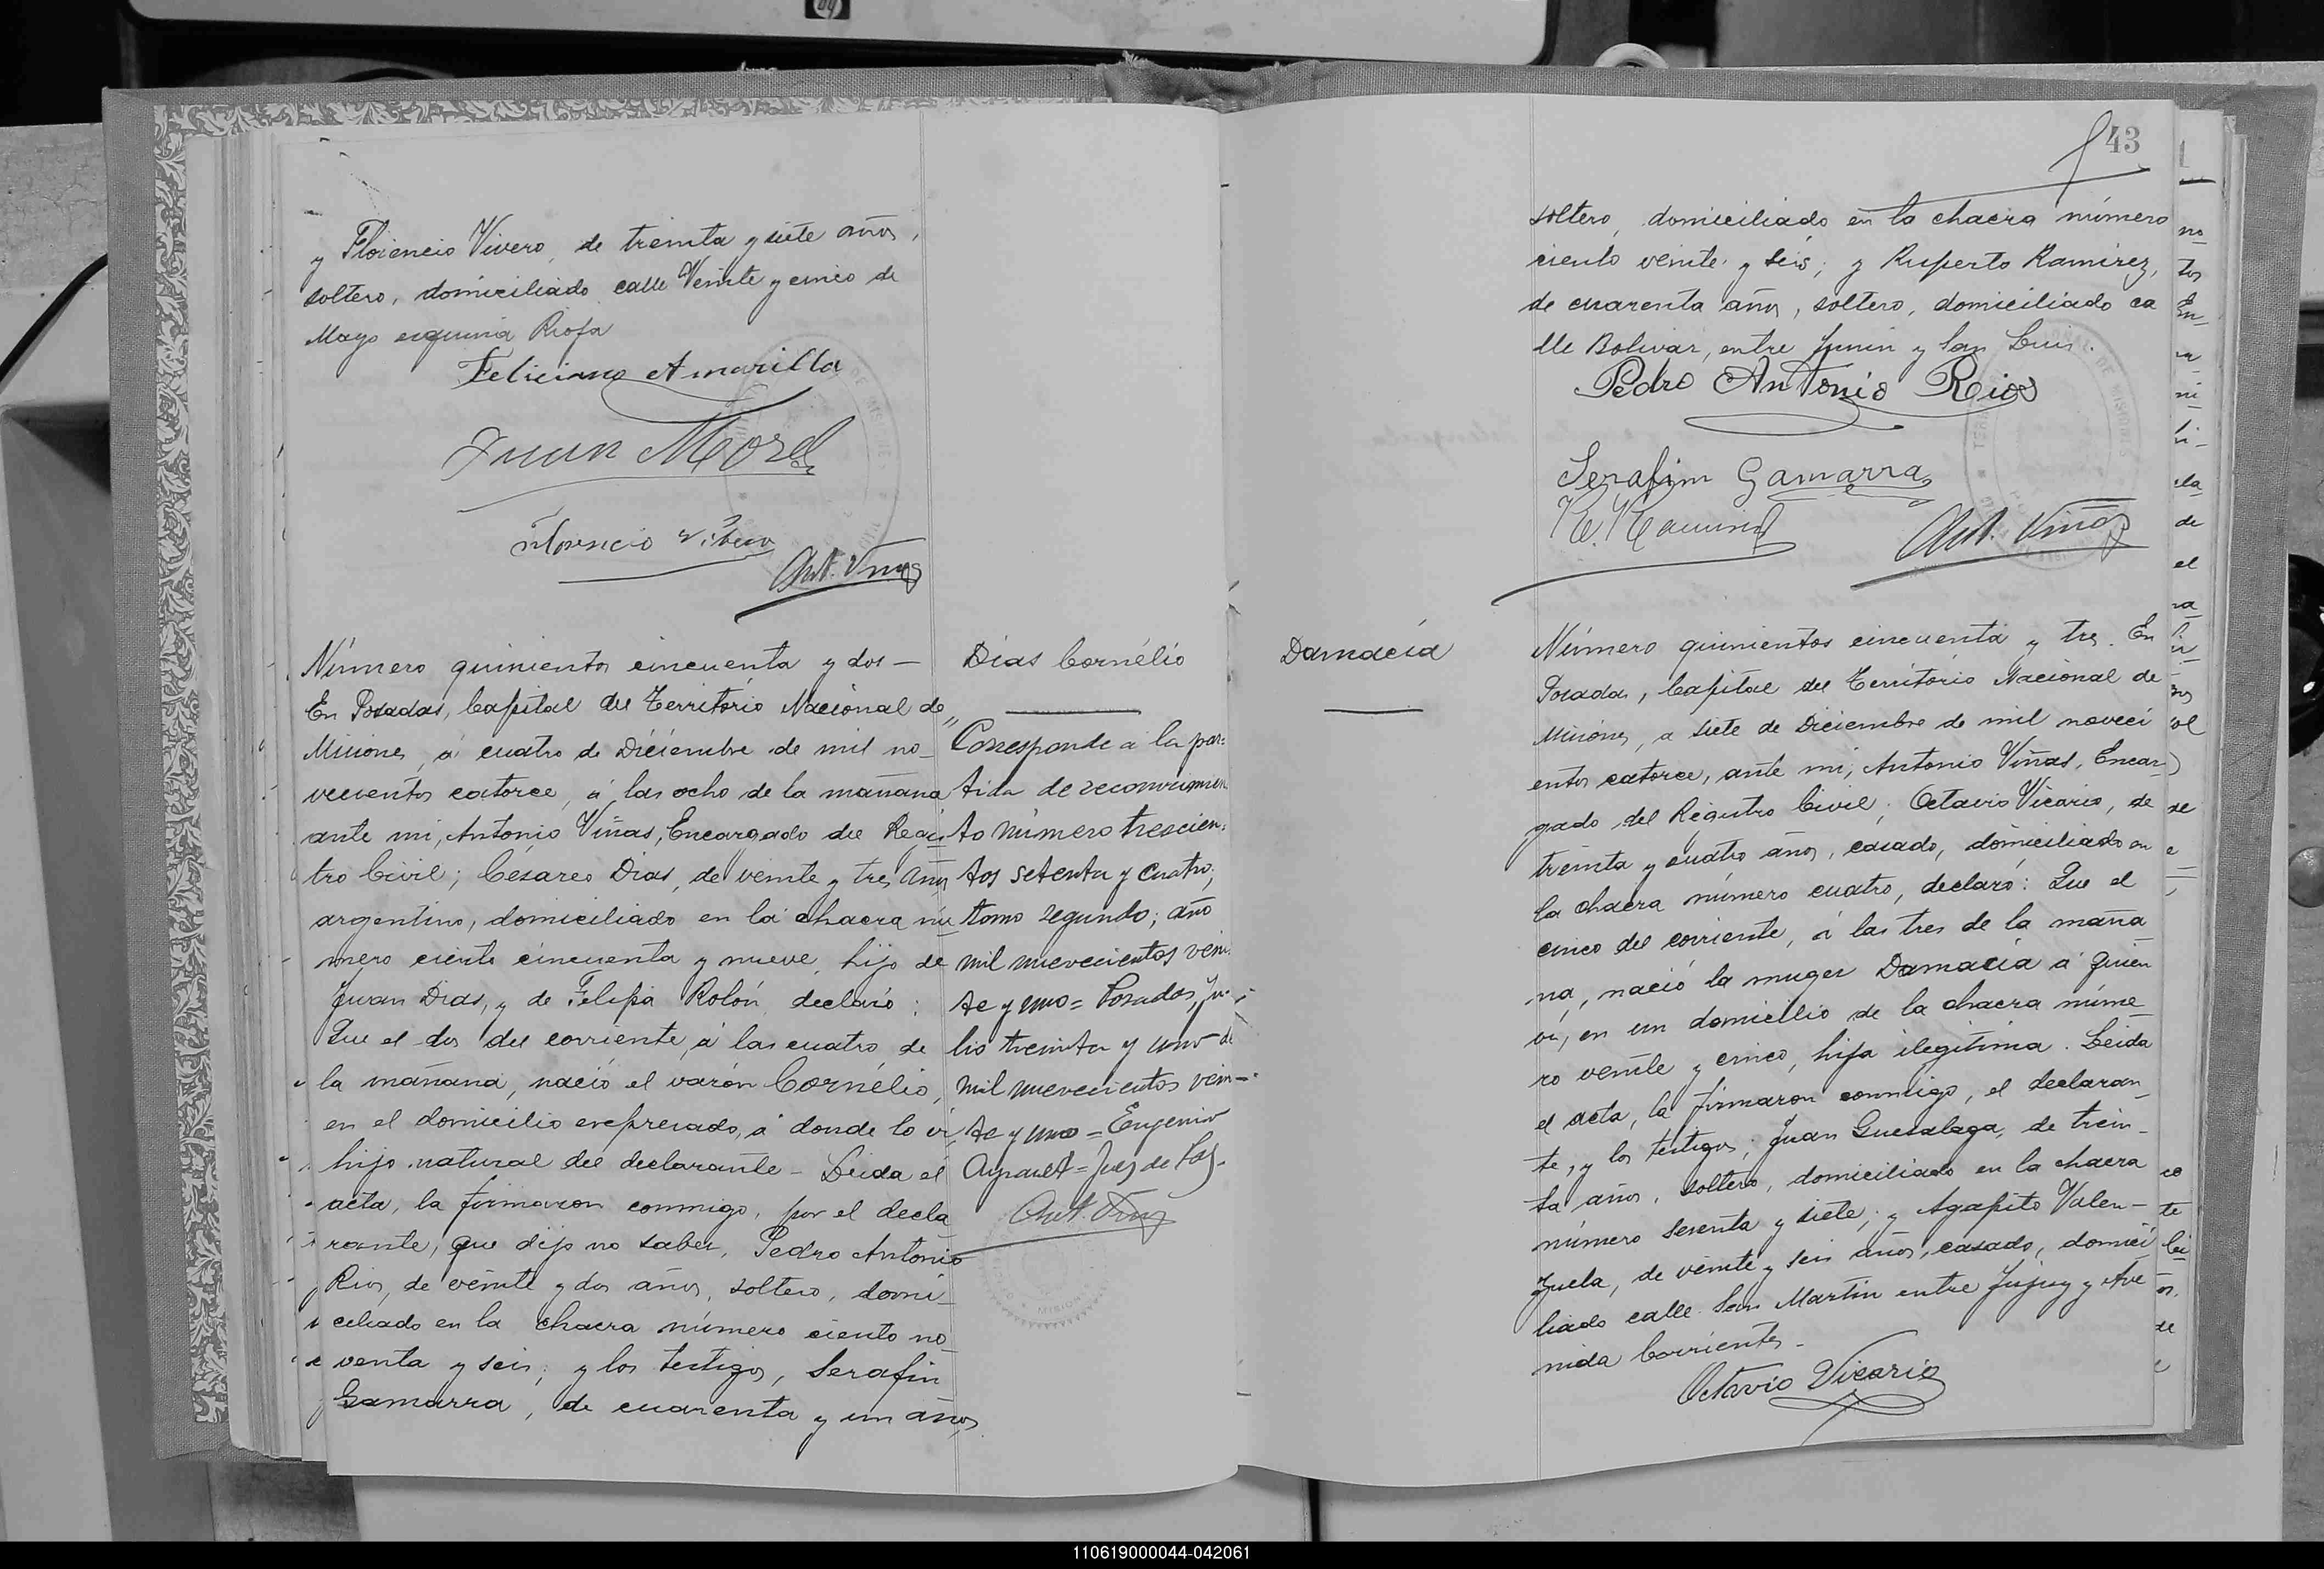 y Florencio Vivero, de treinta y siete años,
soltero, domiciliado calle Veinte y cinco de
Mayo esquina Rioja
Feliciano Amarilla
Juan Morel
Florencio Vivero
Ant. Viñas
Número quinientos cincuenta y dos —
En Posadas, Capital del Territorio Nacional de
Misiones, á cuatro de Diciembre de mil no_
vecientos catorce, á las ocho de la mañana
ante mi, Antonio Viñas, Encargado del Regis
tro Civil; Césareo Dias, de veinte y tres años
argentino, domiciliado en la chacra nú_
mero ciento cincuenta y nueve, hijo de
Juan Dias, y de Felipa Rolón, declaró:
Que el dos del corriente, á las cuatro de
la mañana, nació el varón Cornélio,
en el domicilio expresado, á donde lo vi,
hijo natural del declarante – Leida el
acta, la firmaron conmigo, por el decla
rante, que dijo no saber, Pedro Antonio
Rios, de veinte y dos años, soltero, domi_
ciliado en la chacra número ciento no_
venta y seis; y los testigos, Serafin
Gamarra, de cuarenta y un años,
Dias Cornélio
Corresponde a la par=
tida de reconocimien
to número trescien=
tos setenta y cuatro;
tomo segundo; año
mil nuevecientos vein
te y uno = Posadas, Ju-
lio treinta y uno de
mil nuevecientos vein-
te y uno = Eugenio
= Juez de Paz.
Ant. Viñas
43
soltero, domiciliado en la chacra número
ciento veinte y seis; y Ruperto Ramirez,
de cuarenta años, soltero, domiciliado ca
lle Bolivar, entre Junin y San Luis.
Pedro Antonio Rios
Serafim Gamarra
R. Ramirez
Ant. Viñas
Damacia
Número quinientos cincuenta y tres. En
Posadas, Capital del Territorio Nacional de
Misiones, a siete de Diciembre de mil noveci
entos catorce, ante mi, Antonio Viñas, Encar_
gado del Registro Civil; Octavio Vicario, de
treinta y cuatro años, casado, domiciliado en
la chacra número cuatro, declaró: Que el
cinco del corriente, á las tres de la maña
na, nació la muger Damacia á quien
vi, en un domicilio de la chacra núme
ro veinte y cinco, hija ilegitima. Leida
el acta, la firmaron conmigo, el declaran_
te, y los testigos; Juan Guesalaga, de trein_
ta años, soltero, domiciliado en la chacra
número sesenta y siete; y Agapito Valen_
zuela, de veinte y seis años, casado, domici
liado calle San Martin entre Jujuy y Ave
nida Corrientes –
Octavio Vicario
110619000044-042061